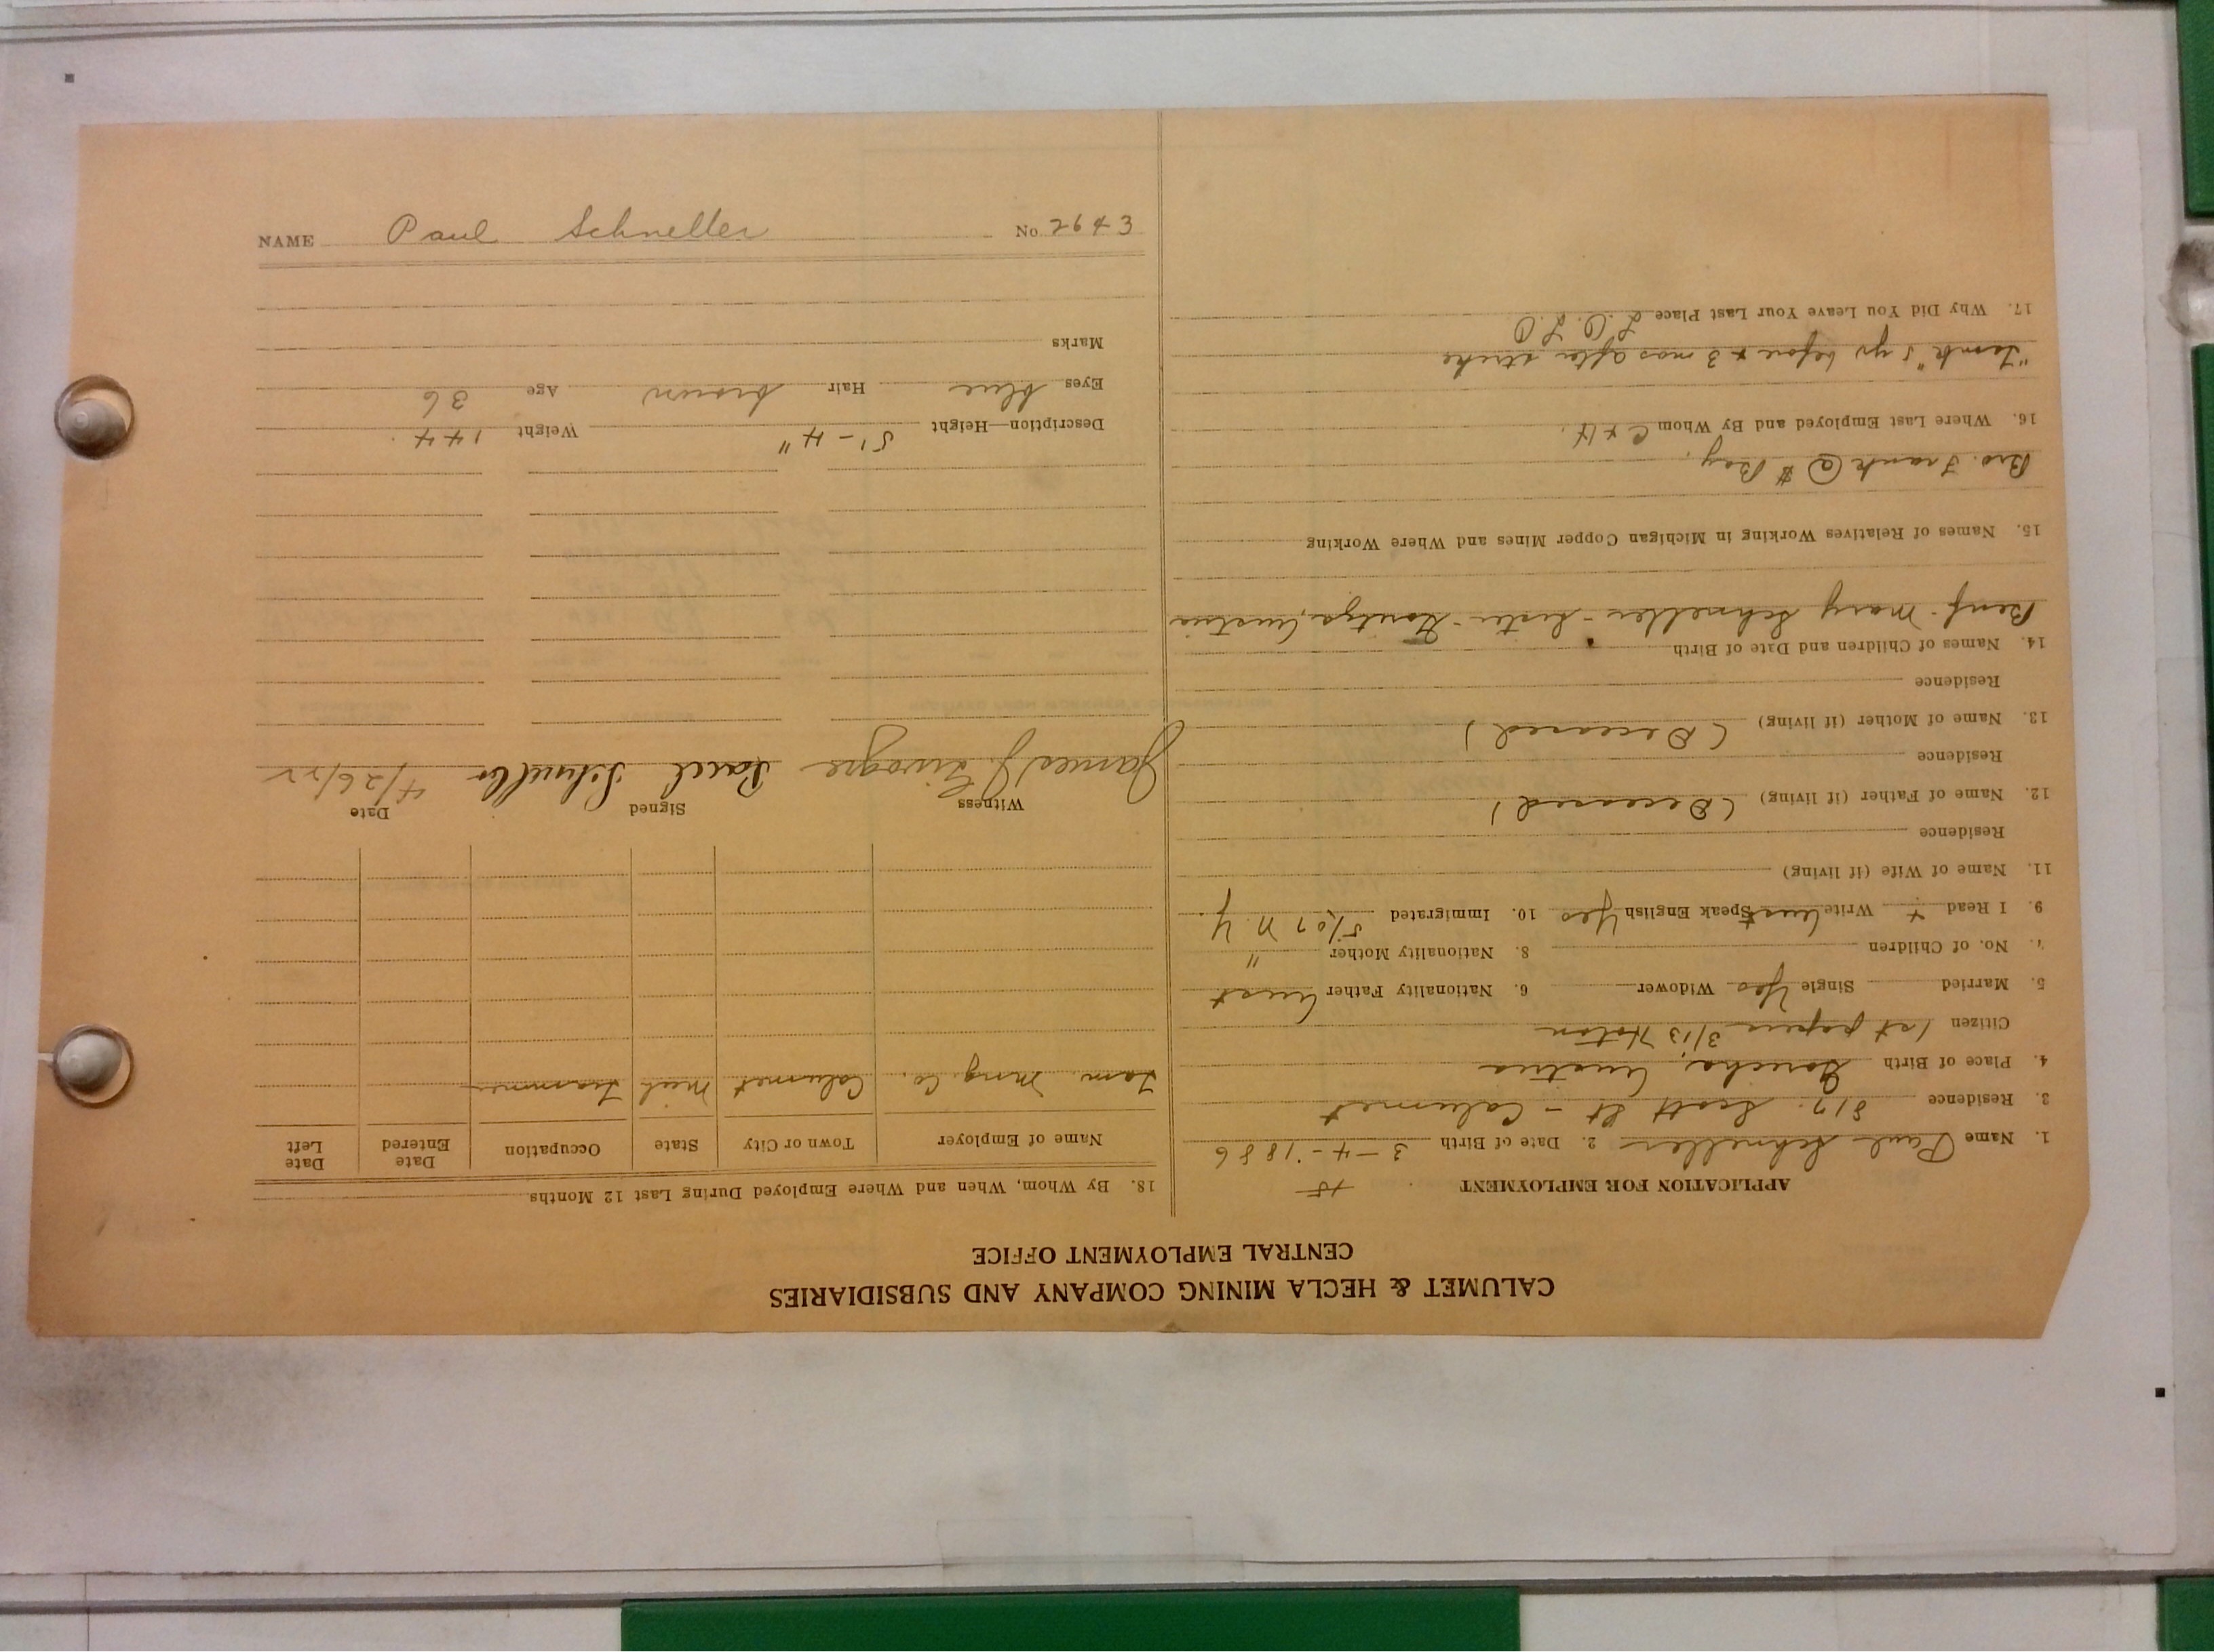 CALUMET & HECLA MINING COMPANY AND SUBSIDIARIES
CENTRAL EMPLOYMENT OFFICE
APPLICATION FOR EMPLOYMENT
1. Name Paul Schneller 2. Date of Birth 3-4-1886
3. Residence 817. Scott St - Calumet
4. Place of Birth Goricha, Austria
Citizen 1st papers 3/13 Hoton
5. Married Single Yes Widower 6. Nationality Father Aust
7. No. of Children 8. Nationality Mother "
9. I Read + Write Aust Speak English Yes 10. Immigrated 5/07 N.Y.
11. Name of Wife (if living)
Residence
12. Name of Father (if living) (Deceased)
Residence
13. Name of Mother (if living) (Deceased)
Residence
14. Names of Children and Date of Birth
Benf - Mary Schneller - Sister - Austria
15. Names of Relatives Working in Michigan Copper Mines and Where Working
Bro. Frank @ # Bay.
16. Where Last Employed and By Whom C & H.
"Tamk" 5 yr before & 3 mos after strike
17. Why Did You Leave Your Last Place L.O.
18. By Whom, When and Where Employed During Last 12 Months
Name of Employer Town or City State Occupation Date Entered Date Left
Tam. Mng. Co. Calumet Mich Trammer
Witness Signed Date
James J. Paul Schneller 4/26/22
Description—Height 5'-4" Weight 144.
Eyes blue Hair brown Age 36
Marks
NAME Paul Schneller No. 2643